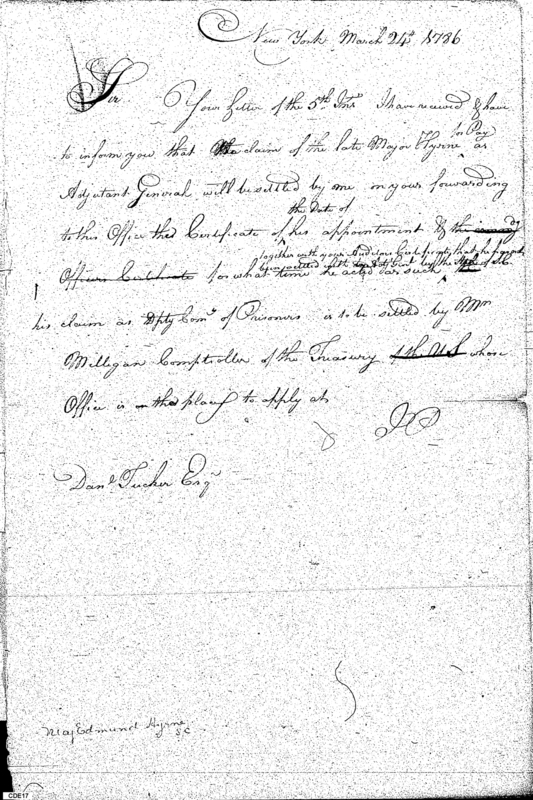 New York March 24th 1786
Sir Your Letter of the 5th Inst I have received & have
to inform you that the claim of the late Major Hyrne for Pay as
Adjutant General will be settled by me on your forwarding
to this Office the Certificate of the Date of his appointment &
Officers Certificate together with your for what time he acted as such
his claim as Dpty Comy of Prisoners is to be settled by Mr
Milligan Comptroller of the Treasury of the U S whose
Office is the place to apply at
JP
Danl Tucker Esqr
Maj Edmund Hyrne
SC
CDE17